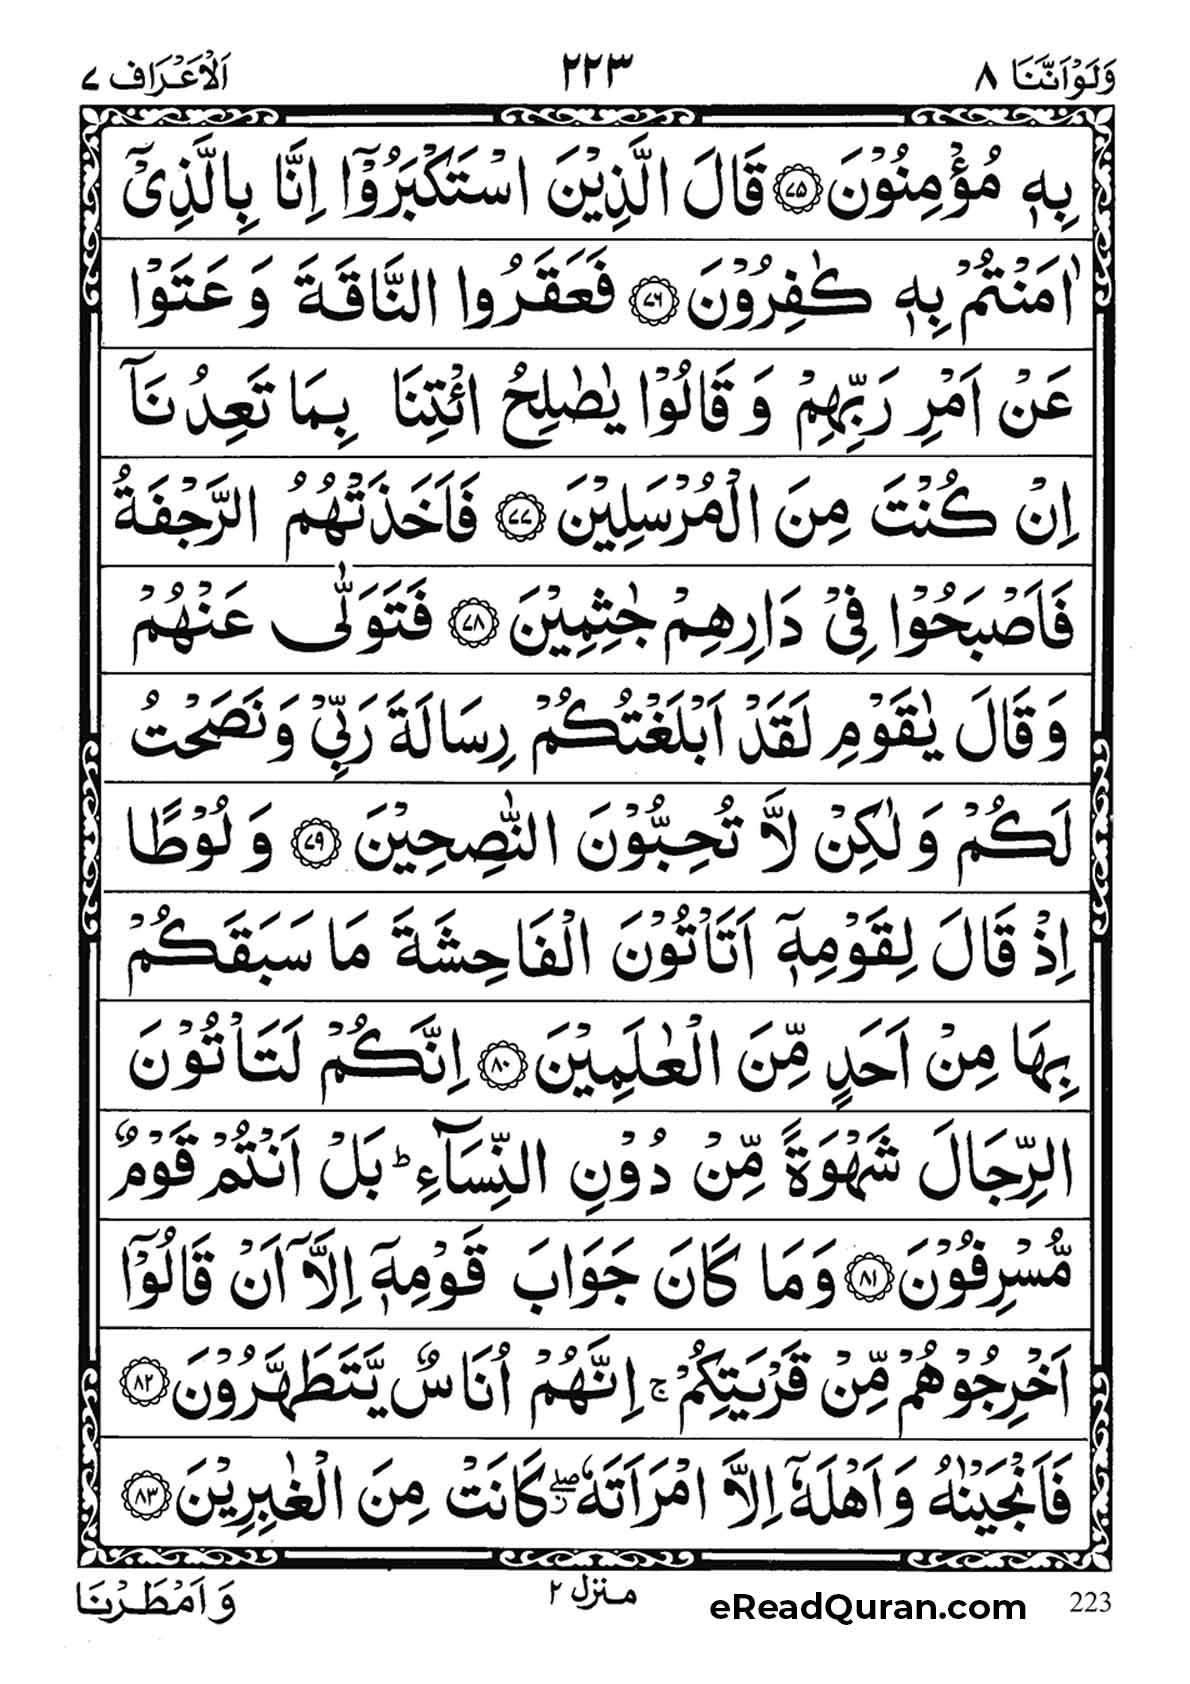 وَلَوْ اَنَّنَا ٨
٢٢٣
اَلْاَعْرَاف ٧
بِهٖ مُؤْمِنُوْنَ ٧٥ قَالَ الَّذِيْنَ اسْتَكْبَرُوْۤا اِنَّا بِالَّذِيْۤ
اٰمَنْتُمْ بِهٖ كٰفِرُوْنَ ٧٦ فَعَقَرُوا النَّاقَةَ وَ عَتَوْا
عَنْ اَمْرِ رَبِّهِمْ وَ قَالُوْا يٰصٰلِحُ ائْتِنَا بِمَا تَعِدُنَاۤ
اِنْ كُنْتَ مِنَ الْمُرْسَلِيْنَ ٧٧ فَاَخَذَتْهُمُ الرَّجْفَةُ
فَاَصْبَحُوْا فِيْ دَارِهِمْ جٰثِمِيْنَ ٧٨ فَتَوَلّٰى عَنْهُمْ
وَ قَالَ يٰقَوْمِ لَقَدْ اَبْلَغْتُكُمْ رِسَالَةَ رَبِّيْ وَ نَصَحْتُ
لَكُمْ وَ لٰكِنْ لَّا تُحِبُّوْنَ النّٰصِحِيْنَ ٧٩ وَ لُوْطًا
اِذْ قَالَ لِقَوْمِهٖۤ اَتَاْتُوْنَ الْفَاحِشَةَ مَا سَبَقَكُمْ
بِهَا مِنْ اَحَدٍ مِّنَ الْعٰلَمِيْنَ ٨٠ اِنَّكُمْ لَتَاْتُوْنَ
الرِّجَالَ شَهْوَةً مِّنْ دُوْنِ النِّسَآءِؕ بَلْ اَنْتُمْ قَوْمٌ
مُّسْرِفُوْنَ ٨١ وَ مَا كَانَ جَوَابَ قَوْمِهٖۤ اِلَّاۤ اَنْ قَالُوْۤا
اَخْرِجُوْهُمْ مِّنْ قَرْيَتِكُمْۚ اِنَّهُمْ اُنَاسٌ يَّتَطَهَّرُوْنَ ٨٢
فَاَنْجَيْنٰهُ وَ اَهْلَهٗۤ اِلَّا امْرَاَتَهٗ ۖ كَانَتْ مِنَ الْغٰبِرِيْنَ ٨٣
وَ اَمْطَرْنَا
منزل ٢
eReadQuran.com
223